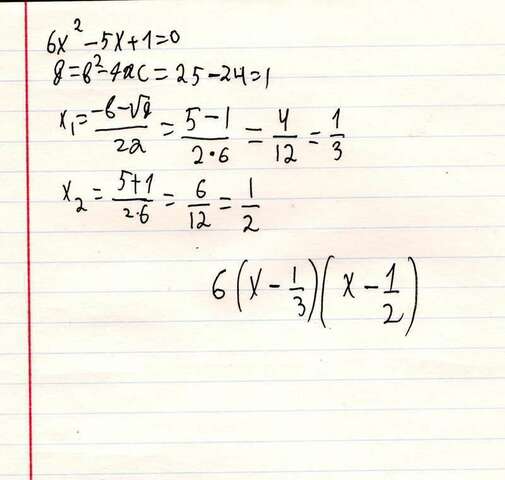 6x² - 5x + 1 = 0
g = b² - 4ac = 25 - 24 = 1
x₁ = (-b - √g)/(2a) = (5 - 1)/(2·6) = 4/12 = 1/3
x₂ = (5 + 1)/(2·6) = 6/12 = 1/2
6(x - 1/3)(x - 1/2)